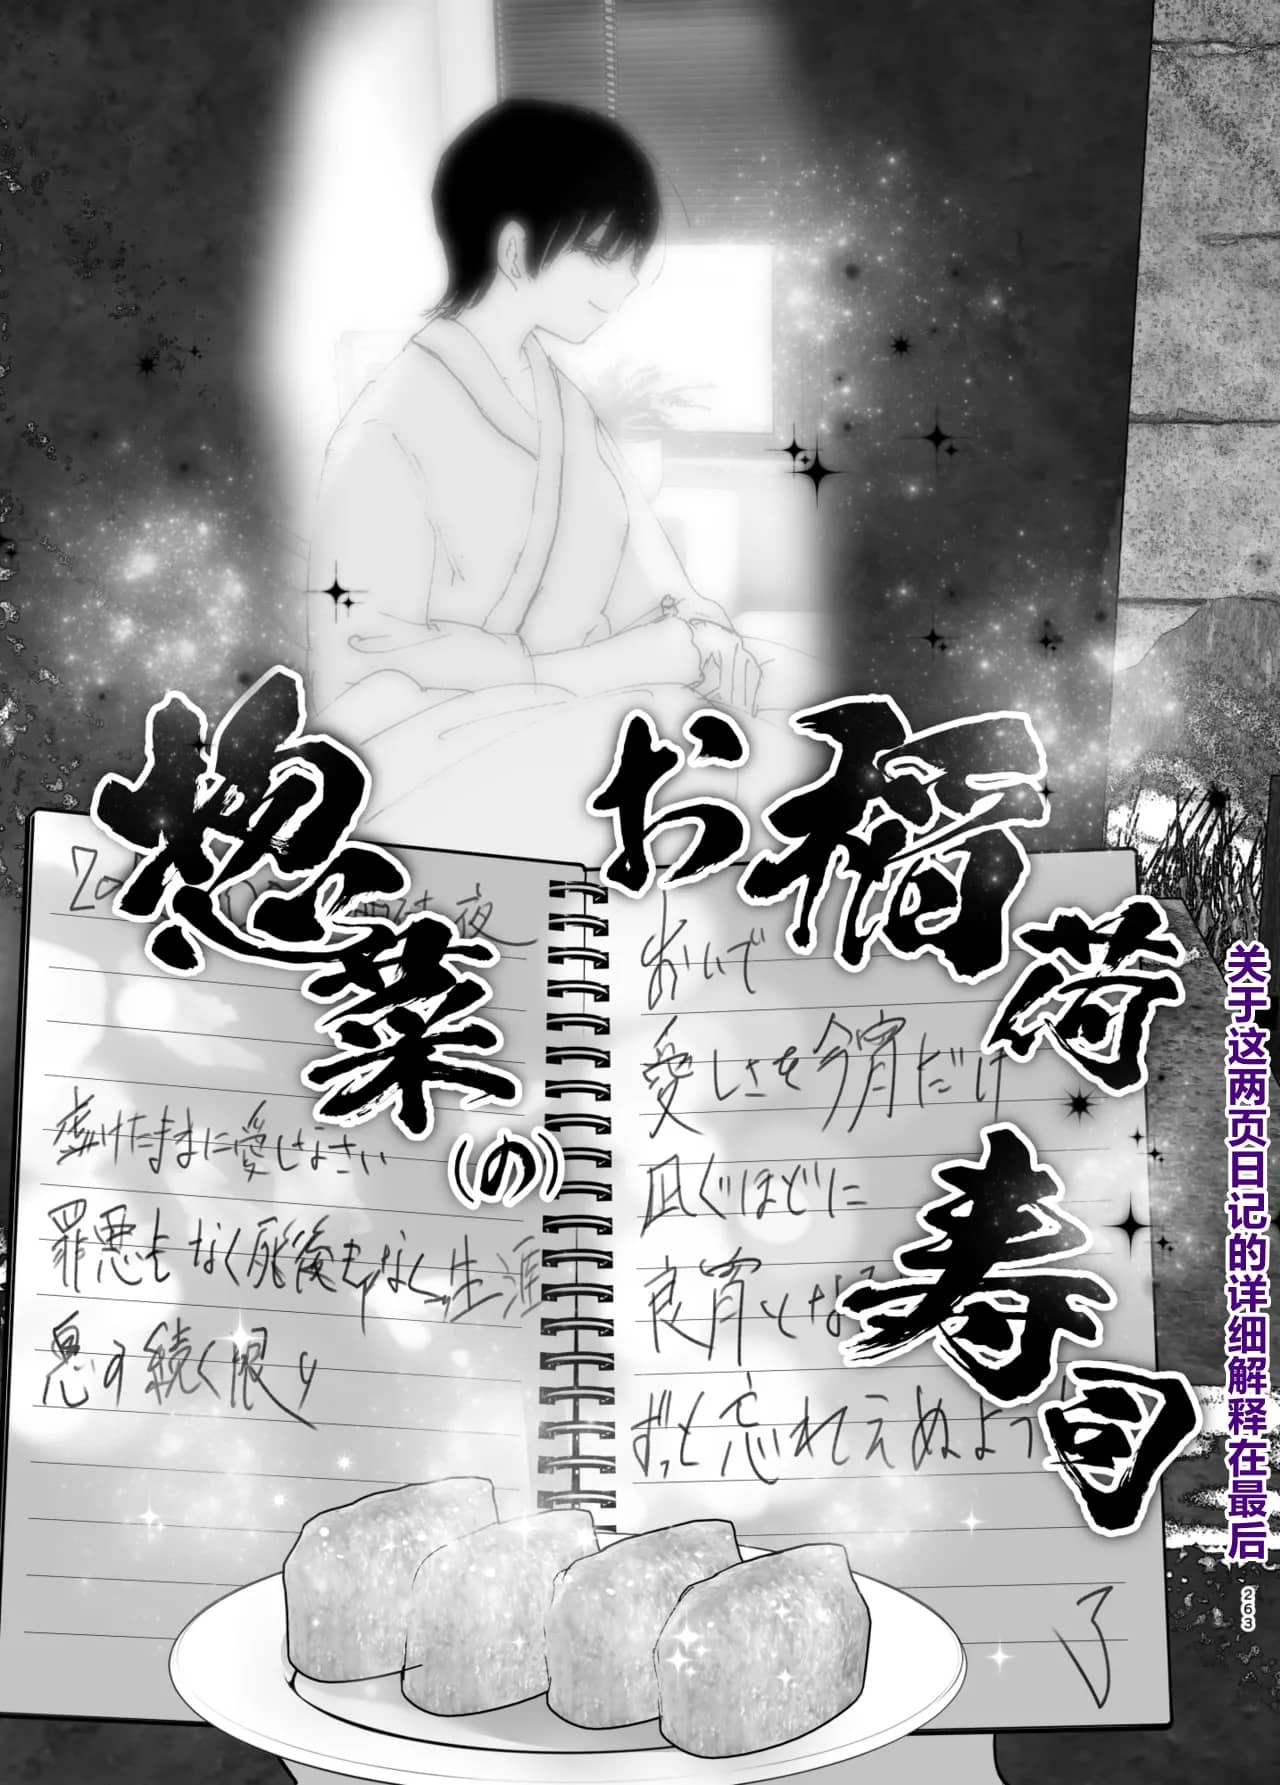 お稲荷
寿司
惣菜
(の)
夜
虚けたままに愛しなさい
罪悪もなく死後もなく生涯
息の続く限り
おいで
愛しさを今宵だけ
凪ぐほどに
良宵とな
ずっと忘れえぬよう
了
关于这两页日记的详细解释在最后
263